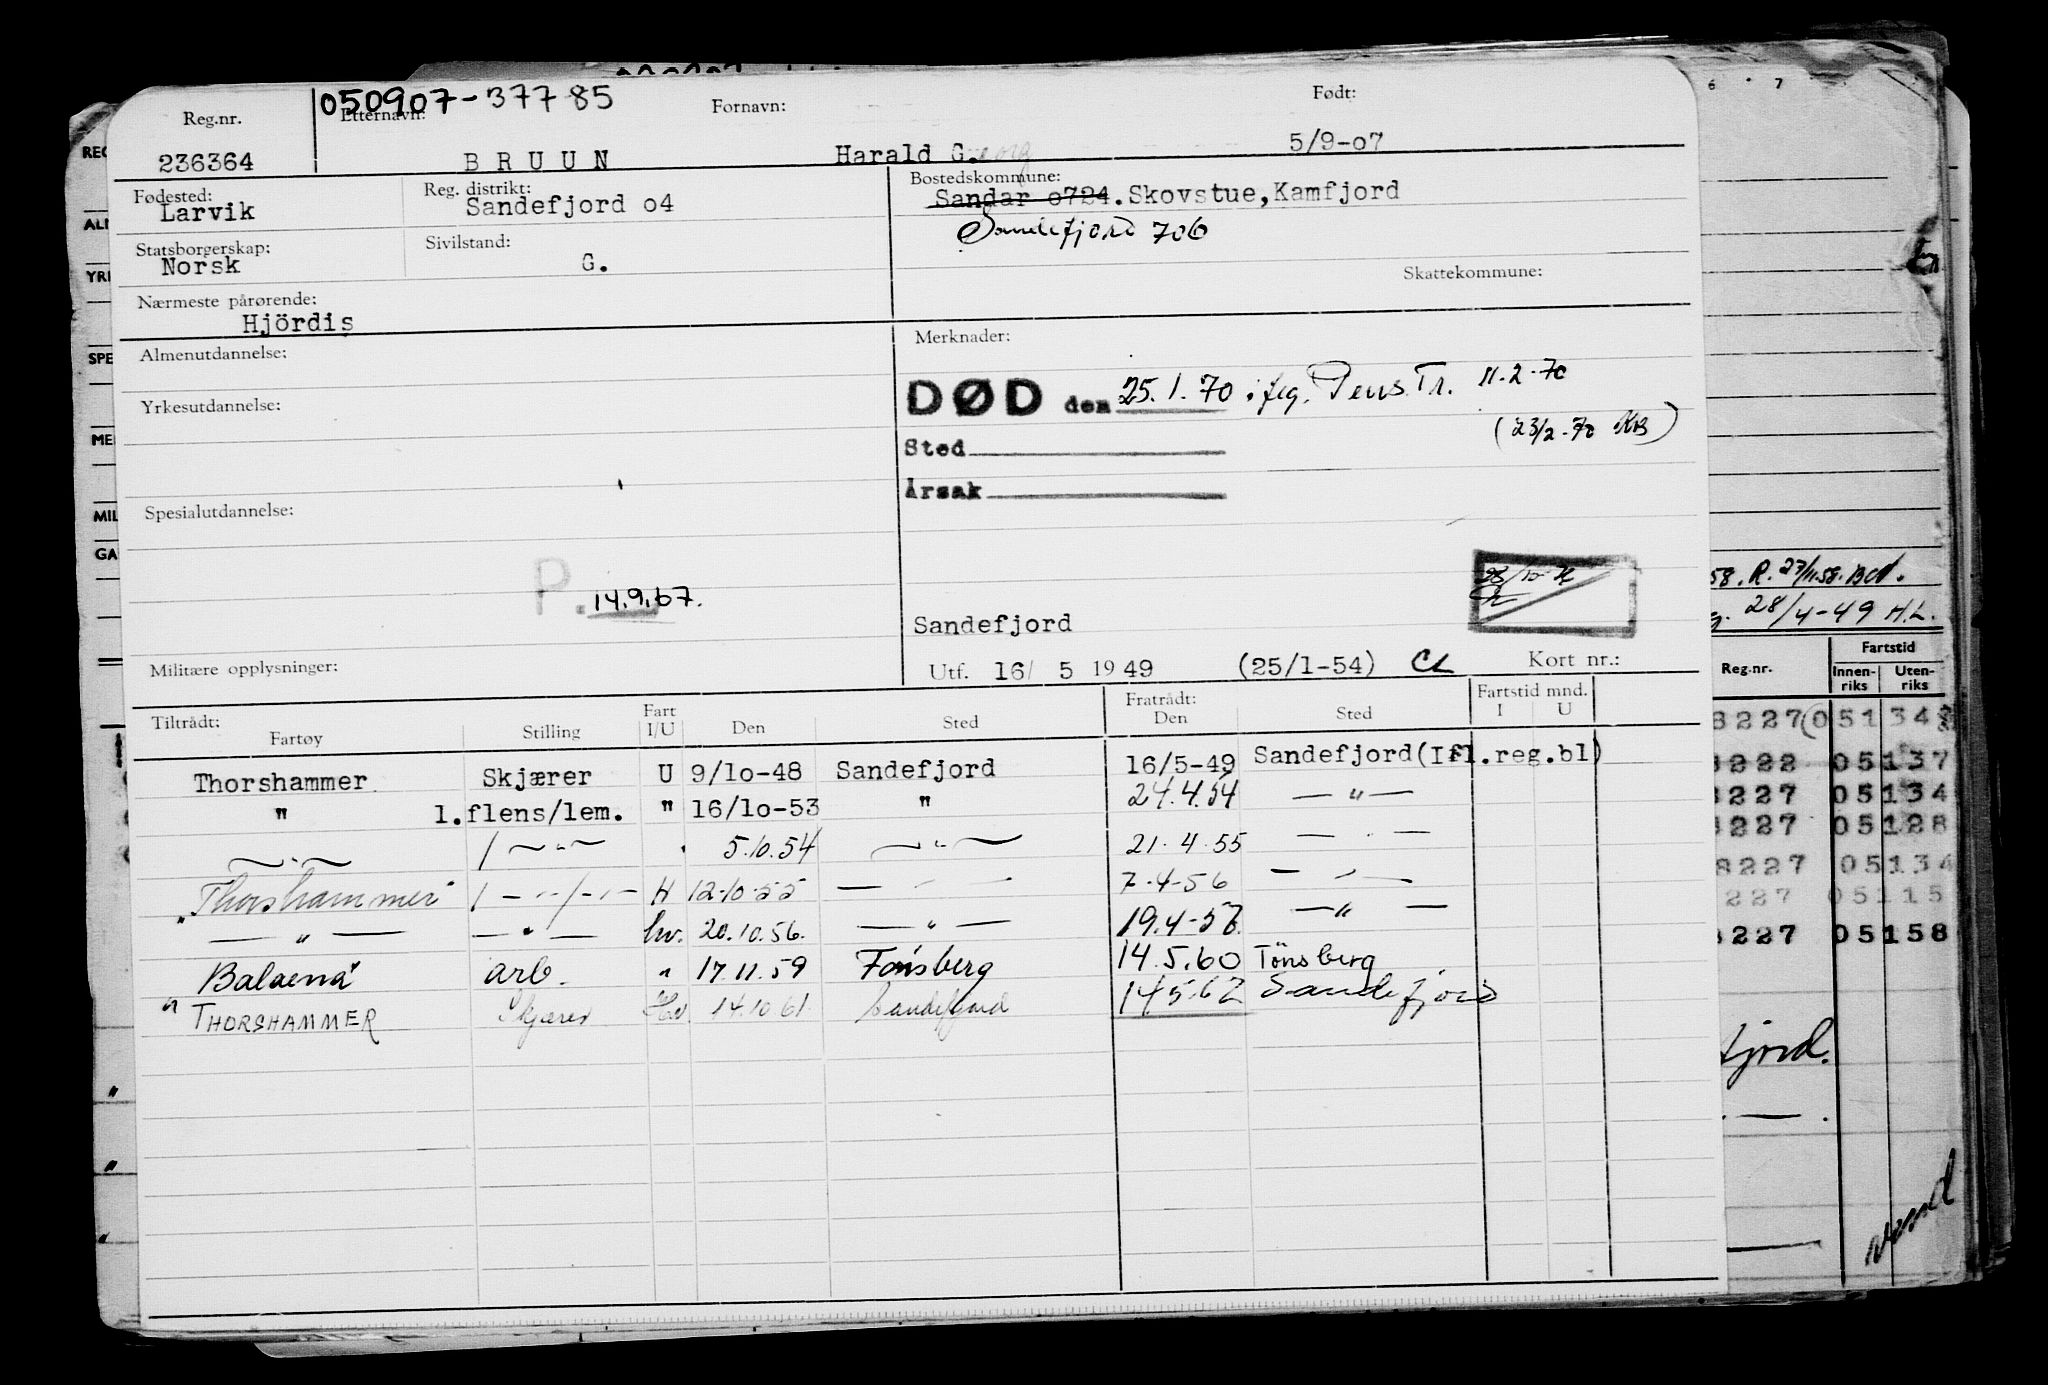 050907-37785
Reg.nr. Etternavn: Fornavn: Født:
236364 BRUUN Harald G.eorg 5/9-o7
Fødested: Reg. distrikt: Bostedskommune:
Larvik Sandefjord o4 Sandar o724. Skovstue, Kamfjord
Sandefjord 706
Statsborgerskap: Sivilstand:
Norsk G.
Skattekommune:
Nærmeste pårørende:
Hjördis
Merknader:
Almenutdannelse:
DØD den 25.1.70 ifg. Pens Tr. 11.2.70
Yrkesutdannelse:
(23/2-70 KB)
Sted
Årsak
Spesialutdannelse:
P. 14.9.67.
Sandefjord
Militære opplysninger: Utf. 16/ 5 1949 (25/1-54) CL Kort nr.:
Tiltrådt: Fratrådt: Fartstid mnd.
Fartøy Stilling Fart I/U Den Sted Den Sted I U
Thorshammer Skjærer U 9/1o-48 Sandefjord 16/5-49 Sandefjord(Ifl.reg.bl)
" 1.flens/lem. " 16/1o-53 " 24.4.54 — " —
— " — 1 — " — " 5.10.54 — " — 21.4.55 — " —
"Thorshammer" 1 — " — / — " — H 12-10-55 — " — 7-4-56 — " —
— " — — " — hv. 20.10.56. — " — 19.4-57. — " —
Balaena" arb. " 17.11.59 Tønsberg 14.5.60 Tönsberg
" THORSHAMMER Skjærer Hv 14.10.61 Sandefjord 14.5.62 Sandefjord
6 7
REG
ALM
YRK
SPE
MIL
GA
58. R. 27/11.58. BCd.
28/4-49 H.L.
Fartstid
Reg.nr. Innen-riks Uten-riks
8227 (0 5134
8222 05137
8227 05134
8227 05128
8227 05134
227 05115
8227 05158
fjord.